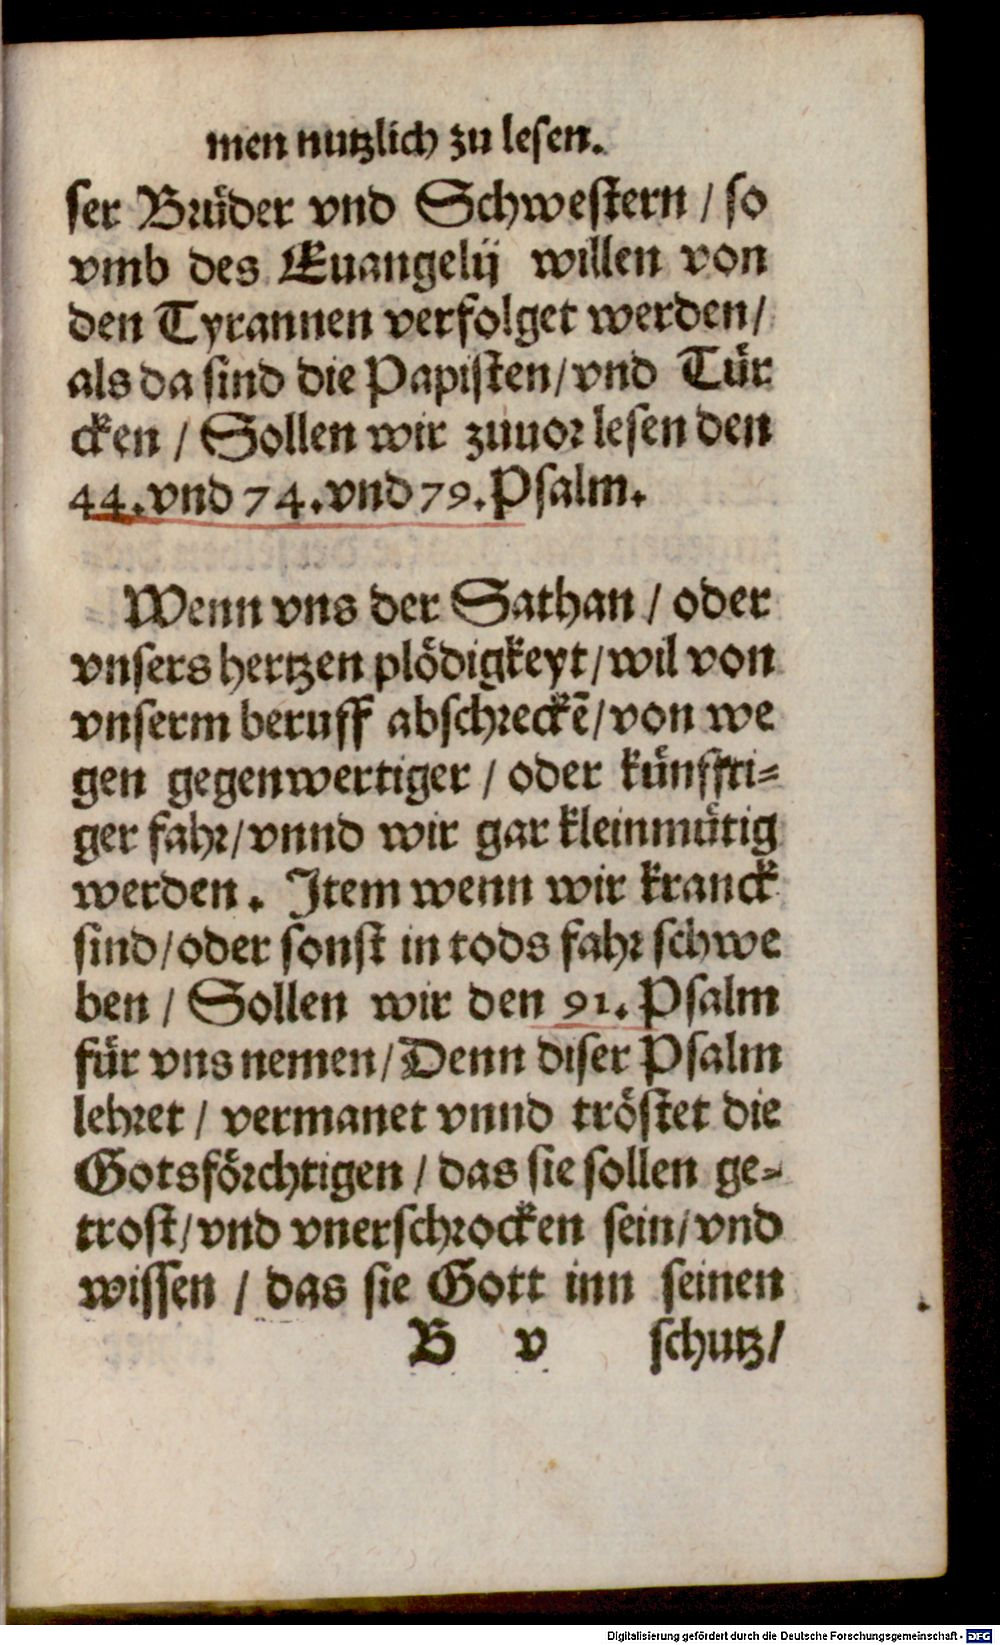 men nutzlich zu lesen.
ser Brüder vnd Schwestern / so
vmb des Euangelij willen von
den Tyrannen verfolget werden/
als da sind die Papisten/vnd Tür
cken / Sollen wir zuuor lesen den
44.vnd 74.vnd 79.Psalm.
Wenn vns der Sathan / oder
vnsers hertzen plödigkeyt/wil von
vnserm beruff abschreckẽ/von we
gen gegenwertiger / oder künffti=
ger fahr/vnnd wir gar kleinmütig
werden. Item wenn wir kranck
sind/oder sonst in tods fahr schwe
ben / Sollen wir den 91. Psalm
für vns nemen/Denn diser Psalm
lehret / vermanet vnnd tröstet die
Gotsförchtigen / das sie sollen ge=
trost/vnd vnerschrocken sein/vnd
wissen / das sie Gott inn seinen
B v schutz/
Digitalisierung gefördert durch die Deutsche Forschungsgemeinschaft - DFG